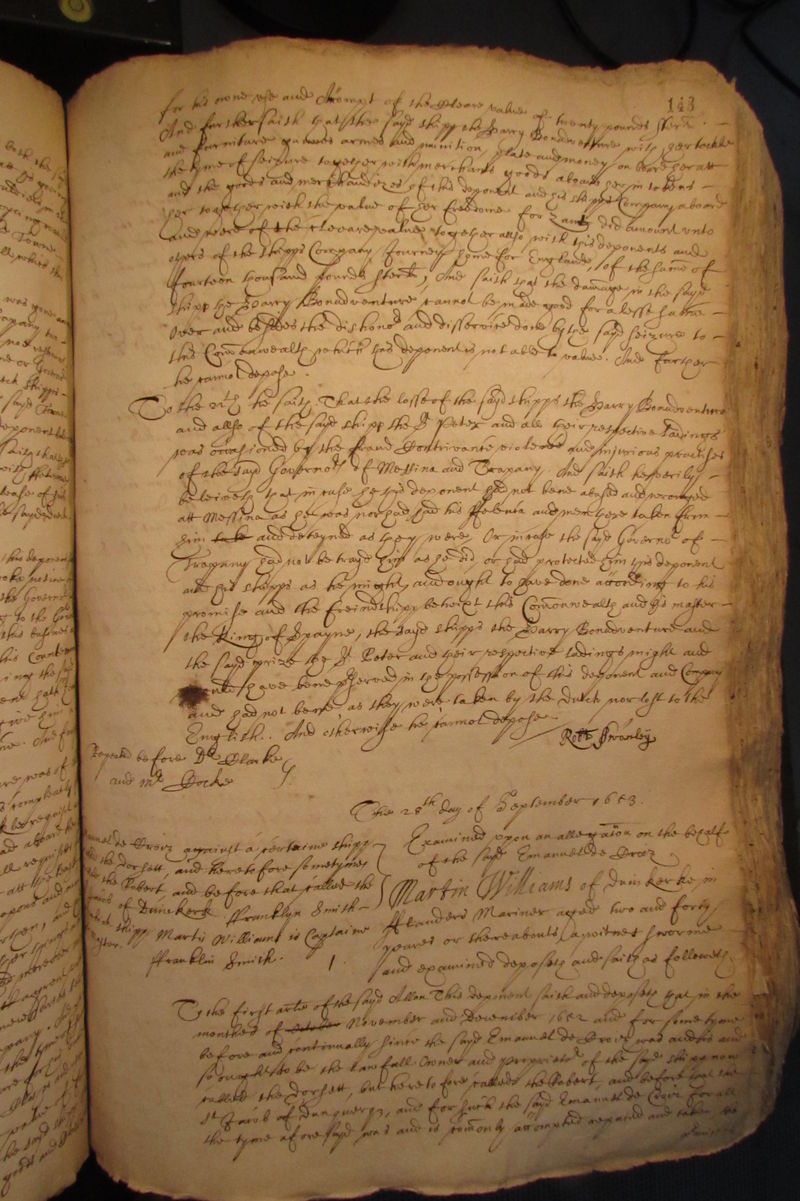 143
for his owne use and Accompt of the cleare value of twenty pounds sterl.
And further saith that the sayd shipp the Harry Bonadventure with her tackle
and furniture gunnes armes and munition, plate and money on board her att
the tyme of seizure together with merchants goods aboard her in tokens
and the goods and merchandizes of this deponent and his shipps Company aboard
her together with the value of her freedome for Zant did amount unto
and were of the cleare value together allso with this deponents and
others of the shipps Company Journey home for England, of the summe of
fourteen thousand pounds sterl, And saith that the damage in the sayd
shipp the Harry Bonadventure cannot be made good for a lesse
Over and besides the dishonor and disservice done by the sayd seizure to
this Comonwealth which this deponent is not able to value. And further
he cannot depose.
To the he saith That the losse of the sayd shipps the Harry Bonadventure
and allso of the sayd shipp the St Peter and all their respective ladings
was occasioned by the fraud Contrivance violence and injurious practises
of the sayd Governors of Messina and Trapany, And saith hee verily
beleiveth that in case he this deponent had not bene abused and wronged
att Messina as he was nor had had his and men there taken from
him and deteyned as they were, Or in case the sayd Governor of
Trapany had not betrayd him as he did, or had protected him this deponent
and his shipps as he might and ought to have done according to his
promise and the freindshipp betwixt this Comonwealth and his master
the King of Spayne, the sayd shipps the Harry Bonadventure and
the sayd prize the St Peter and their respective ladings might and
would have bene preserved in the possession of this deponent and Company
and had not bene as they were taken by the Dutch nor lost to the
English. And otherwise he cannot depose.
Repeated before Dr Clarke
and Mr Docke
The 28th day of September 1653.
Emanuel de Croiz against a certaine shipp
the dorhett, and heretofore sometymes
the Robert and before that called the
of Dunckerk ffranklyn Smith
shipp Martin Williams is Captaine
ffranklin Smith.
Examined upon an allegation on the behalfe
of the sayd Emanuel de Croiz.
Martin Williams of Dunkerke in
fflanders Mariner aged two and forty
yeares or thereabouts a witnes sworne
and examined deposeth and saith as followeth.
1.
To the first arle of the sayd Allon This deponent saith and deposeth that in the
monthes of October November and December 1652 and for some tyme
before and continually since the sayd Emanuel de Croiz was and is and
so ought to be the lawfull Owner and proprietor of the sayd shipp now
called the dorhett, but heretofore called the Robert, and before that the
St Jacob of Dunquerq, and for such the sayd Emanuel de Croiz for all
the tyme aforesayd was and is comonly accompted reputed and taken